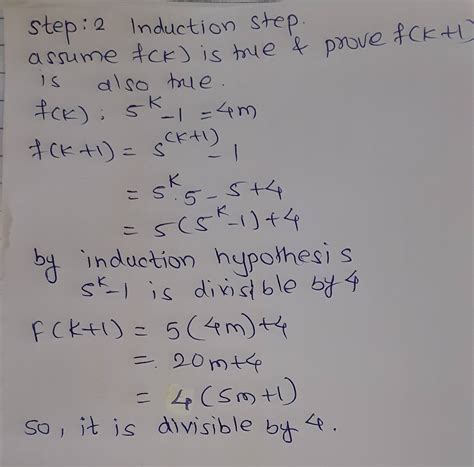 step:2 Induction step.
assume f(k) is true & prove f(k+1)
is also true.
f(k): 5^k-1 = 4m
f(k+1) = 5^(k+1) - 1
= 5^k.5 - 5+4
= 5(5^k-1)+4
by induction hypothesis
5^k-1 is divisible by 4
F(k+1) = 5(4m)+4
= 20m+4
= 4(5m+1)
so, it is divisible by 4.